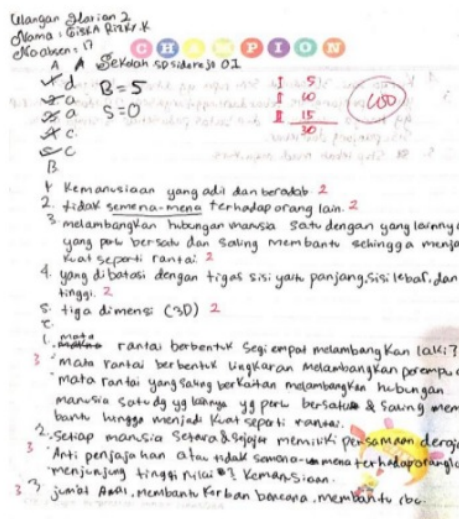 Ulangan Harian 2
Nama : GiskA Rizky.K
No absen : 17
CHAMPION
A A Sekolah SD Sidorejo 01
1 d B = 5
2 a S = 0
3 a
4 c
5 C
I 5
II 10
III 15
30
100
B.
1 Kemanusiaan yang adil dan beradab 2
2. tidak semena-mena terhadap orang lain. 2
3. melambangkan hubungan manusia satu dengan yang lainnya
yang perlu bersatu dan saling membantu sehingga menja
kuat seperti rantai 2
4. yang dibatasi dengan tigas sisi yaitu panjang, sisi lebar, dan
tinggi. 2
5. tiga dimensi (3D) 2
C.
1. mata rantai berbentuk segi empat melambangkan laki2
3 mata rantai berbentuk lingkaran melambangkan perempu
mata rantai yang saling berkaitan melambangkan hubungan
manusia satu dg yg lainnya yg perlu bersatu & saling mem
bantu hingga menjadi kuat seperti rantai.
2. Setiap manusia setara & sejajar memiliki persamaan deraja
3 Anti penjajahan atau tidak semena-mena terhadap orang l
menjunjung tinggi nilai2 kemanusiaan.
3 3. jum'at Amal, membantu korban bencana, membantu